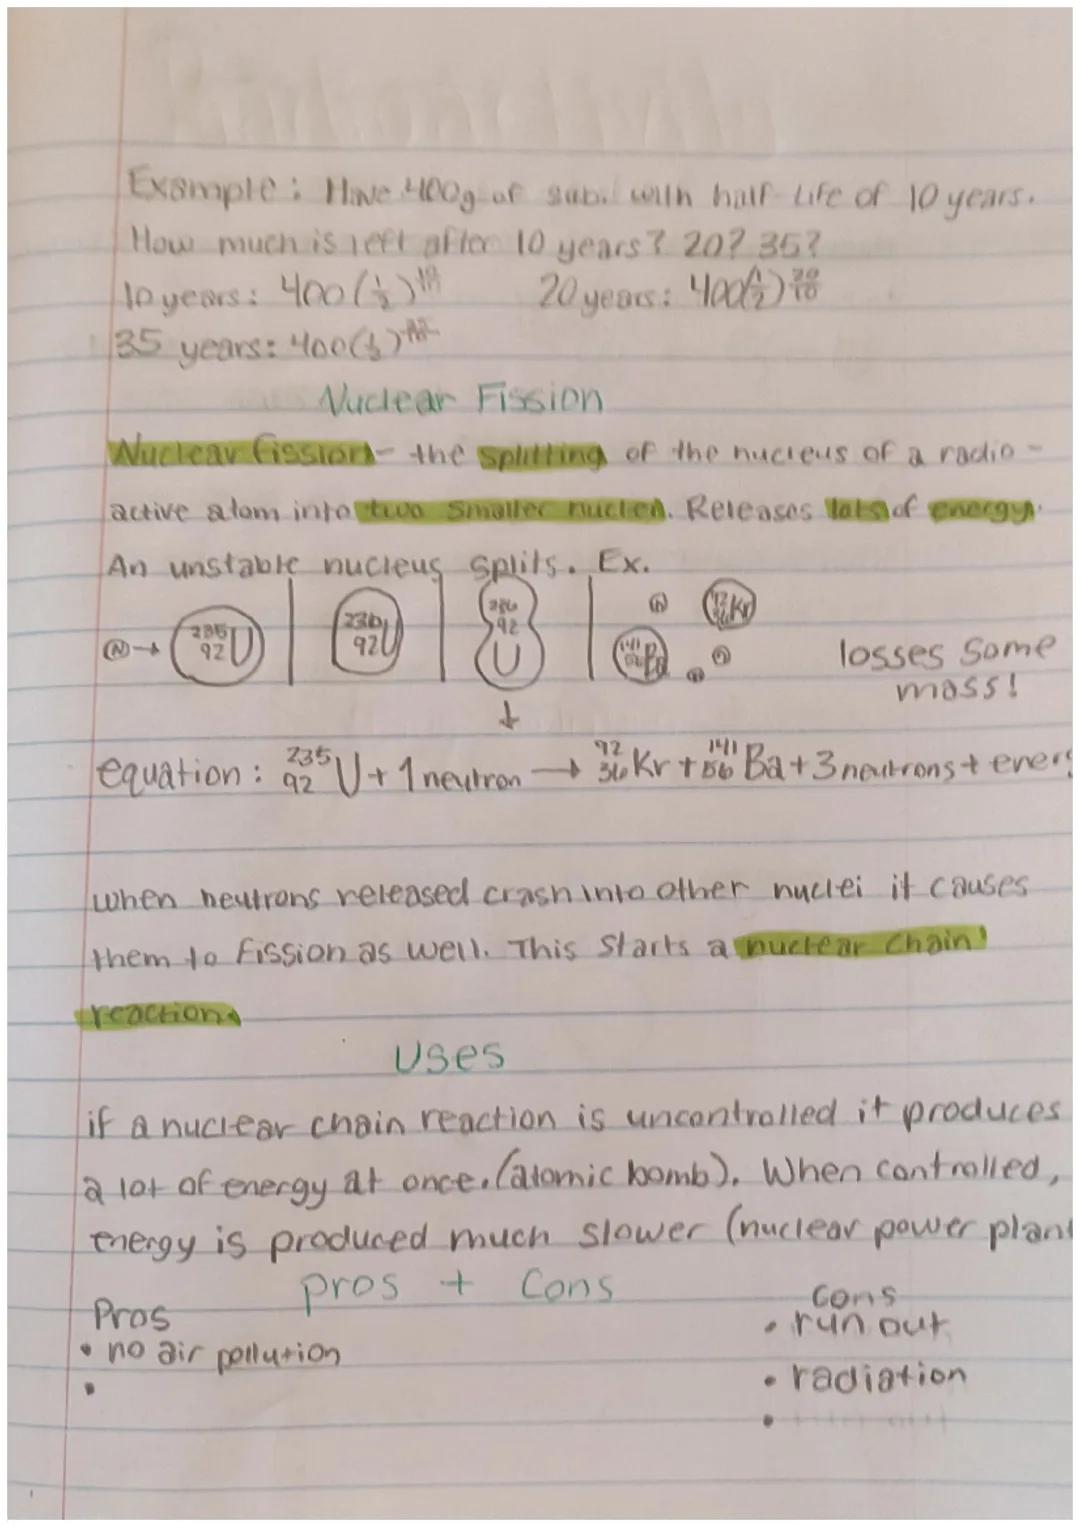 Example: Have 400g of sub. with half-life of 10 years.
How much is left after 10 years? 20? 35?
10 years: 400(½)^10/10 20 years: 400(½)^20/10
35 years: 400(½)
Nuclear Fission
Nuclear fission- the splitting of the nucleus of a radio-
active atom into two smaller nuclei. Releases lots of energy.
An unstable nucleus splits. Ex.
N → 235 92 U 236 92 U 236 92 U N 92 36 Kr 141 56 Ba
losses some
mass!
↓
equation: 235 92 U + 1 neutron → 92 36 Kr + 141 56 Ba + 3 neutrons + energ
when neutrons released crash into other nuclei it causes
them to fission as well. This starts a nuclear chain
reaction.
Uses
if a nuclear chain reaction is uncontrolled it produces
a lot of energy at once. (atomic bomb). When controlled,
energy is produced much slower (nuclear power plant
pros + Cons
Pros
• no air pollution
•
Cons
• run out
• radiation
•